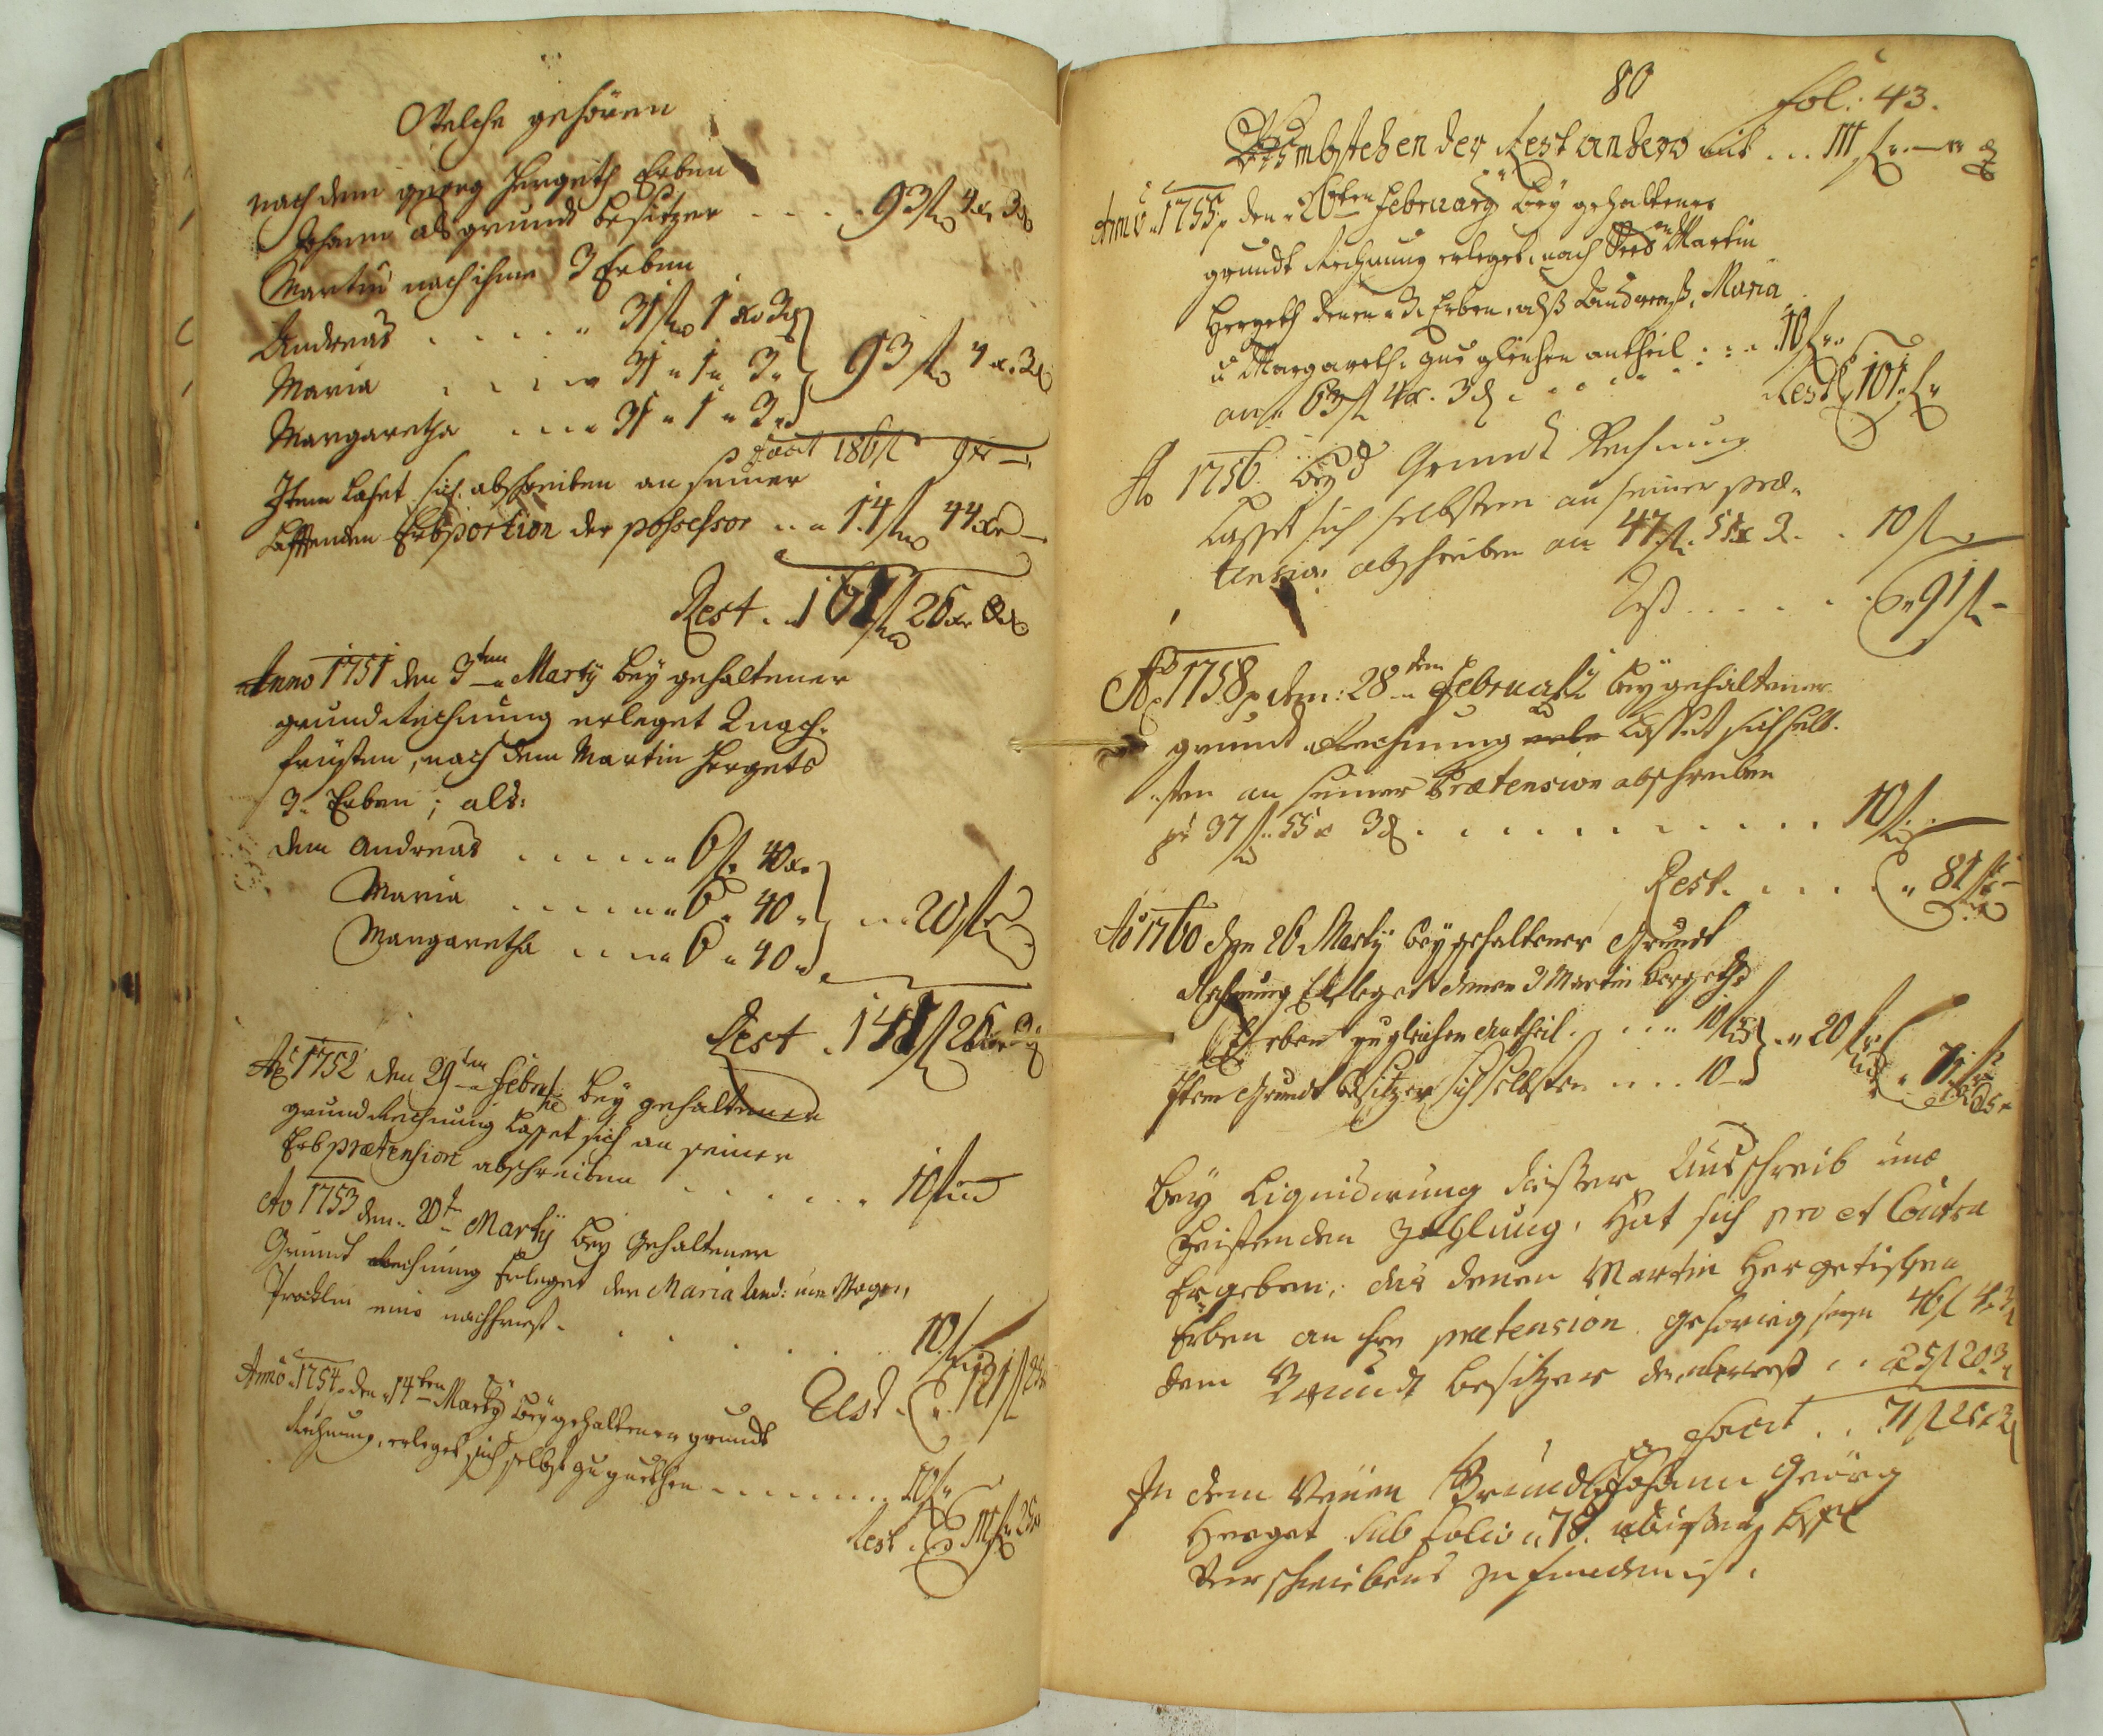 Welche gehören
nach dem georg Hergeth Erben
Johann als grundt besitzer . . . . 93 fl 4 xr 3 d
Martin nach ihme 3 Erben
Andreas . . . . . 31 fl 1 xr 3 d
Maria . . . . 31 " 1 " 3 " 93 fl 4 xr 3 d
Margaretha . . . . 31 " 1 " 3 d
facit 186 fl 9 xr —
Item laßet sich abschreiben an seiner
habenden Erbportion der possessor . . . 14 fl 44 xr —
Rest . . 161 fl 26 xr 3 d
Anno 1751 den 3ten Marty bey gehaltener
grund Rechnung erleget 2 nach-
früsten, nach dem Martin Hergets
3. Erben; als:
dem Andreas . . . . . 6 fl 40 xr
Maria . . . . . . 6 " 40 " . . 20 fl
Margaretha . . . . 6 " 40 "
Rest . 141 fl 26 xr 3 d
Ao 1752 den 29ten Febru: bey gehaltener
grund Rechnung laßet sich an seiner
Erb prætension abschreiben . . . . . . 10 fl
Ao 1753 den 20t Martÿ bey Gehaltener
Grundt Rechnung Erleget der Maria And: und Marga,
eine nachfrist . . . . . . 10 fl
Rest . . 121 fl 26
Anno 1754 den 14ten Martÿ beÿ gehaltener grundt
Rechnung, erleget sich selbst zu guthen . . . . . . 10 fl
Rest . . 111 fl 26
80
fol: 43.
Umbstehender Rest anhero mit . . . 111 fl
Anno 1755 den 26ten February beÿ gehaltener
grundt Rechnung erleget, nach Martin
Hergeth denen 3. Erben, alß Andreaß, Maria
u Margareth. zue gleichen antheil . . . 10 fl
an 63 fl 4 xr. 3 d . . . . . . Rest 101 fl
Ao 1756 bey d Grundt Rechnung
Lasset sich selbsten an seiner præ-
tension abschreiben an 47 fl. 55 x 3 . . 10 fl
Rest . . . . . 91 fl —
Ao 1758 den: 28ten February bey gehaltener
grundt Rechnung erle Lasset sich selb-
sten an seiner Prætension abschreiben
pr 37 fl. 55 x 3 d . . . . . . . . . . . 10 fl
Rest . . . . . 81 fl —
Ao 1760 den 26 Martÿ beÿ gehaltener Grundt
Rechnung Erleget denen 3 Martin Hergeths
Erben zu gleichen Antheil . . . . 10 fl . . 20 fl
Item Grundt besitzer sich selbsten . . . . 10 — 71 fl
Bey Liquidirung dießer Ausschreib und
Fristenden Zahlung, Hat sich pro et Contra
Ergeben; das denen Martin Hergetischen
Erben an ihre prætension gehörig seyn 46 fl 4 x 3 d
dem Grundt besitzer der überrest . . 25 fl 20 3
Facit . . 71 fl 25 x 3 d
In dem Neüen Grundb Johann Georg
Herget sub folio 78.
verschriebens zu finden ist.